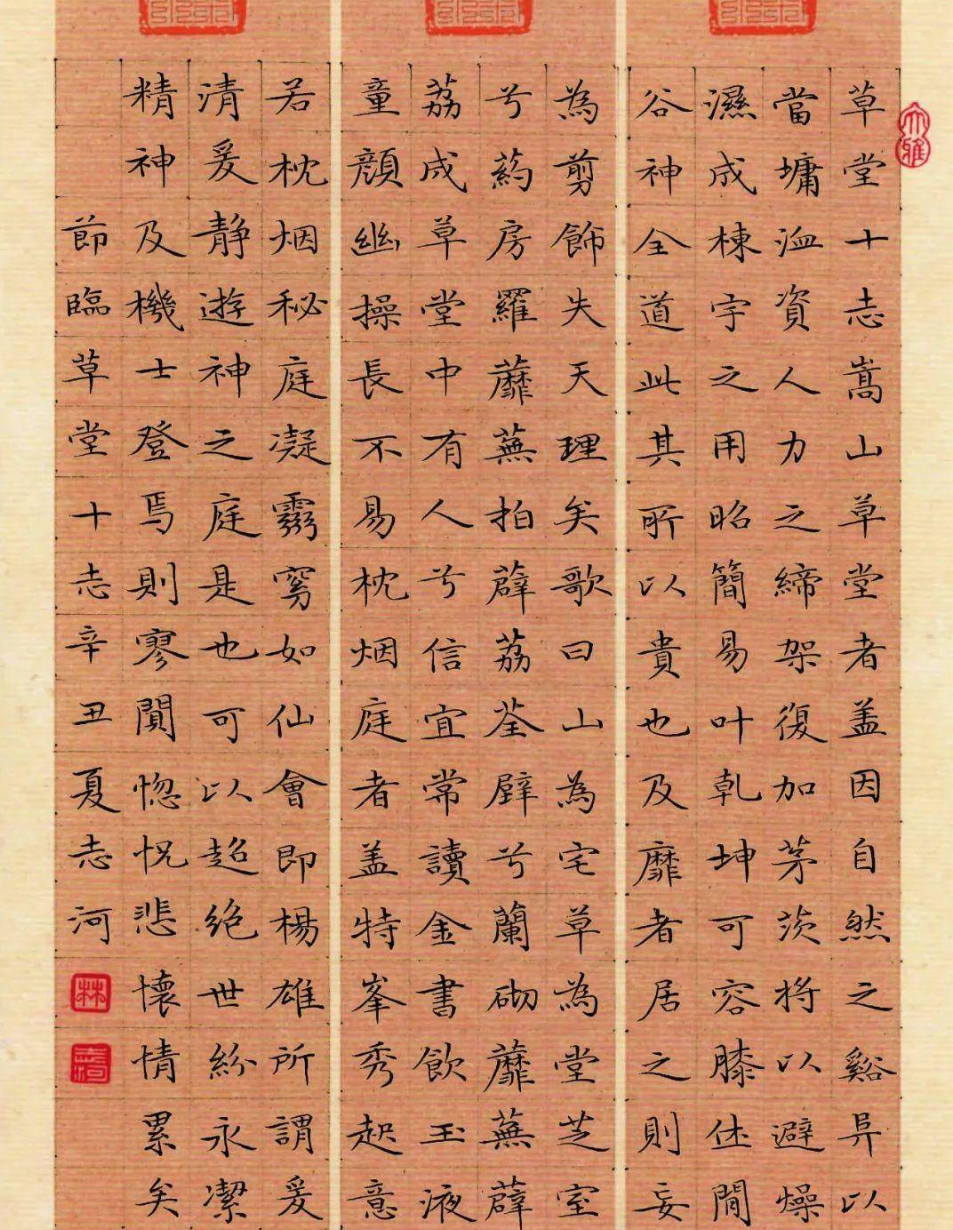 草堂十志嵩山草堂者盖因自然之谿异以
當墉洫資人力之締架復加茅茨将以避燥
濕成棟宇之用昭簡易叶乾坤可容膝休閒
谷神全道此其所以貴也及靡者居之則妄
為剪飾失天理矣歌曰山為宅草為堂芝室
兮葯房羅蘼蕪拍薜荔荃壁兮蘭砌蘼蕪薜
荔成草堂中有人兮信宜常讀金書飲玉液
童顏幽操長不易枕烟庭者盖特峯秀起意
若枕烟秘庭凝靄窅如仙會即楊雄所謂爰
清爰静遊神之庭是也可以超绝世紛永潔
精神及機士登焉則寥闃惚怳悲懷情累矣
節臨草堂十志辛丑夏志河
林
大雅